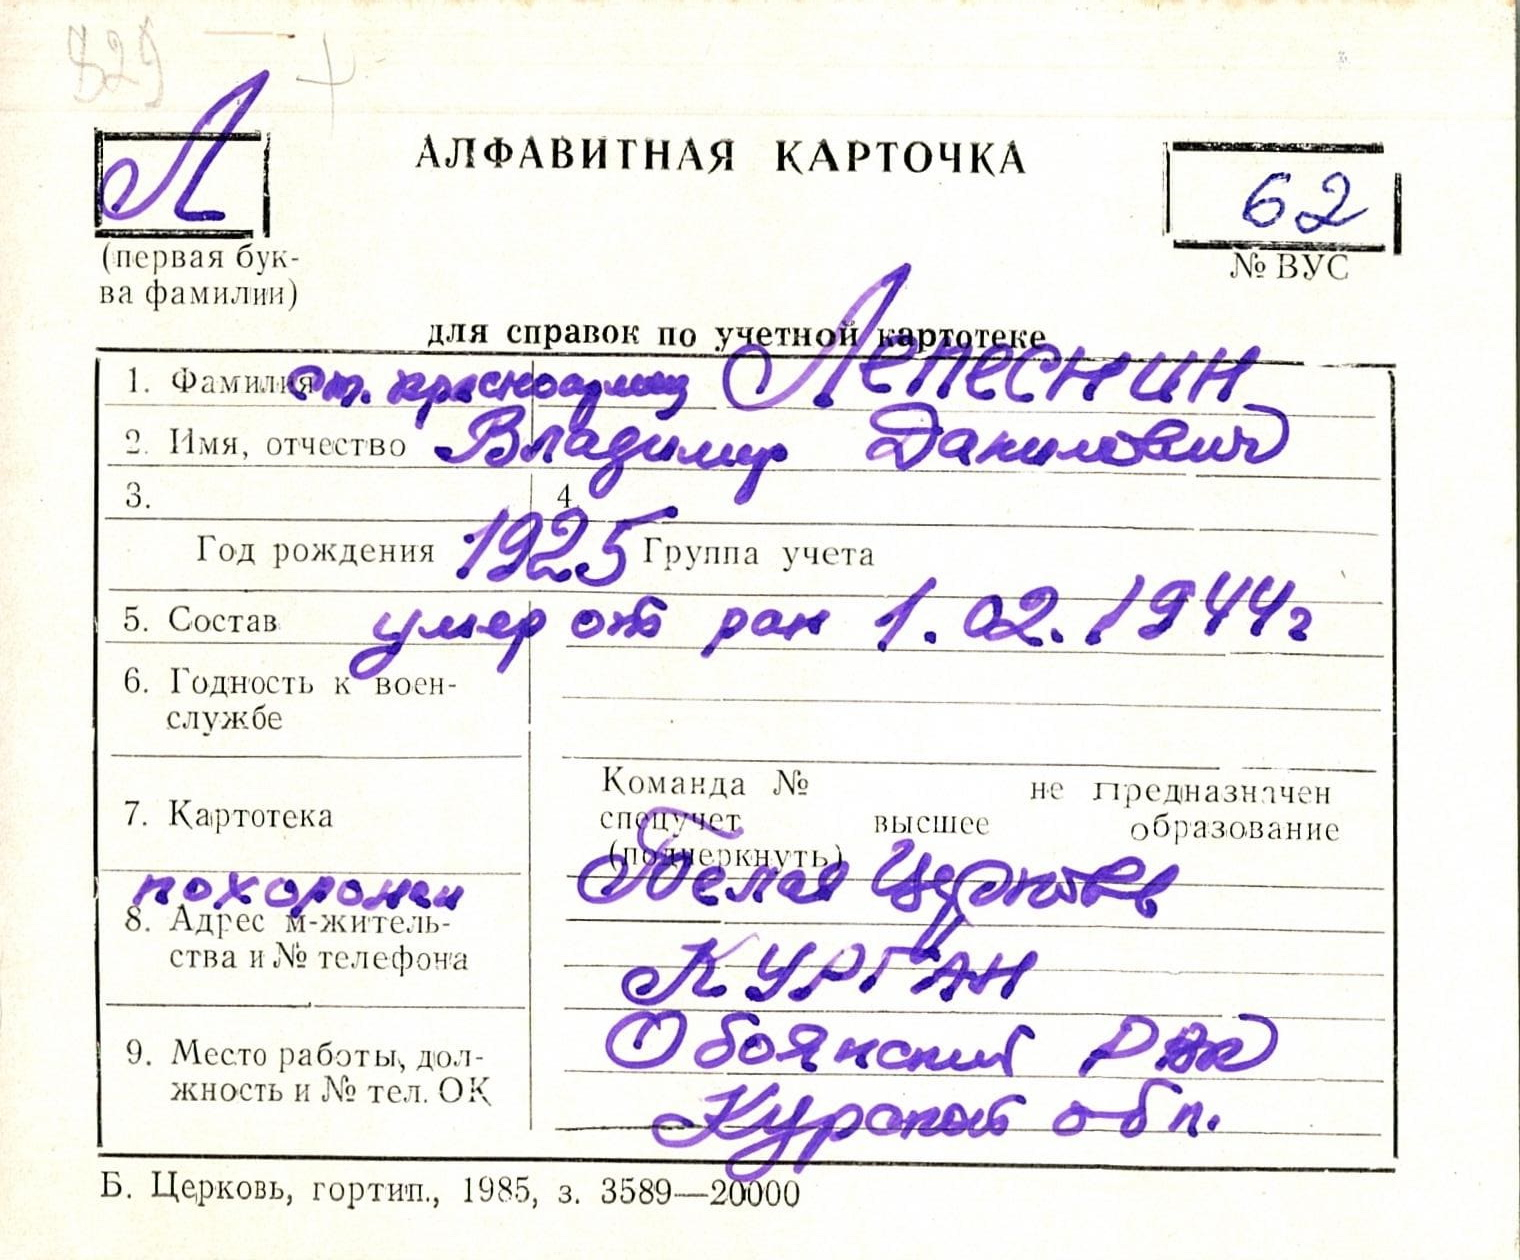 829 — +
Л
АЛФАВИТНАЯ КАРТОЧКА
62
(первая бук-
ва фамилии)
№ ВУС
для справок по учетной картотеке
1. Фамилия ст. красноармеец Лепеснин
2. Имя, отчество Владимир Данилович
3.
4.
Год рождения 1925 Группа учета
5. Состав умер от ран 1.02.1944г
6. Годность к воен-
службе
7. Картотека
Команда № не предназначен
спецучет высшее образование
(подчеркнуть)
похоронен Белая Церковь
8. Адрес м-житель-
ства и № телефона
КУРГАН
9. Место работы, дол-
жность и № тел. ОК
Обоянский РВК
Курской обл.
Б. Церковь, гортип., 1985, з. 3589—20000